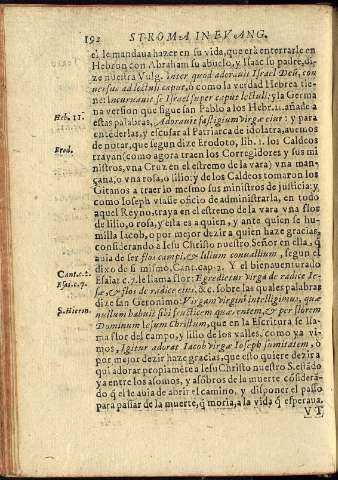 192 STROMA IN EVANG.
el le mandaua hazer en su vida, que erà enterrarle en
Hebron con Abraham su abuelo, y Isaac su padre, di-
ze nuestra Vulg. Inter quod adorauit Israel Deũ, con
uersus ad lectuli caput, ò como la verdad Hebrea tie-
ne: Incuruauit se Israel super caput lectuli; y la Germa
na version que sigue san Pablo a los Hebr. 11. añade a
Heb. 11.
estas palabras, Adorauit fastigium virgæ eius: y para
entẽderlas, y escusar al Patriarca de idolatra, auemos
de notar, que segun dize Erodoto, lib. 1. los Caldeos
Erod.
trayan (como agora traen los Corregidores y sus mi
nistros, vna Cruz en el estremo de la vara) vna man-
çana, o vna rosa, o lilio: y de los Caldeos tomaron los
Gitanos a traer lo mesmo sus ministros de justicia: y
como Ioseph vsasse oficio de administrarla, en todo
aquel Reyno, traya en el estremo de la vara vna flor
de lilio, o rosa, y esta es a quien, y ante quien se hu-
milla Iacob, o por mejor dezir a quien haze gracias,
considerando à Iesu Christo nuestro Señor en ella, q̃
auia de ser flos campi, & lilium conuallium, segun el
dixo de si mismo, Cant. cap. 2. Y el bienauenturado
Cant. c. 2.
Esaias c. 7. le llama flor: Egredietur virga de radice Ies-
Esai. c. 7.
sæ, & flos de radice eius, &c. sobre las quales palabras
dize san Geronimo: Virgam virginẽ intelligimus, quæ
S. Hieron.
nullum habuit sibi fruticem quærentem, & per florem
Dominum Iesum Christum, que en la Escritura se lla-
ma flor del campo, y lilio de los valles, como ya vi-
mos, Igitur adorat Iacob virgæ Ioseph sumitatem, ò
por mejor dezir haze gracias, que esto quiere dezir a
qui adorar propiamẽte à Iesu Christo nuestro S. estãdo
ya entre los asomos, y asõbros de la muerte cõsiderã-
do q̃ el le auia de abrir el camino, y disponer el passo
para passar de la muerte, q̃ moria, a la vida q̃ esperaua.
V T